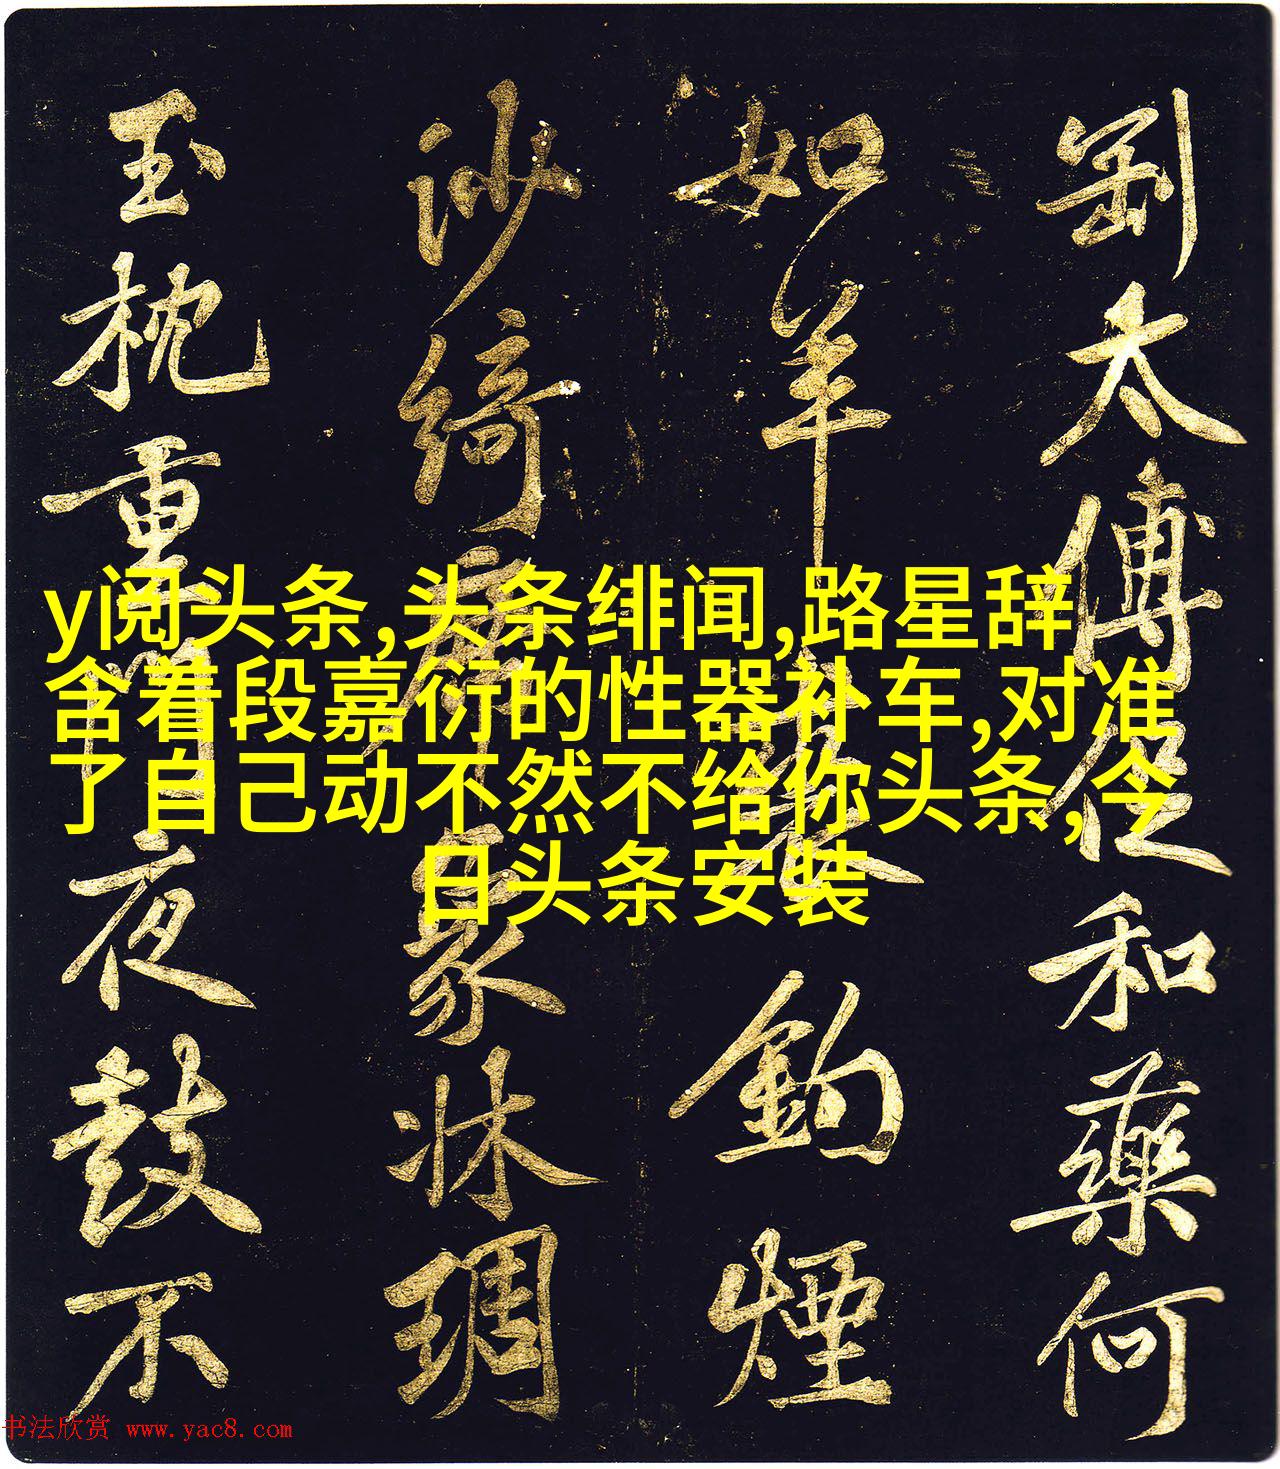 y阅头条,头条绯闻,路星辞
含着段嘉衍的性器补车,对准
了自己动不然不给你头条,今
日头条安装
太傅和藥何
如羊鈎煙
沙綺席象牀琱
玉枕重門夜鼓不
书法欣赏 www.yac8.com